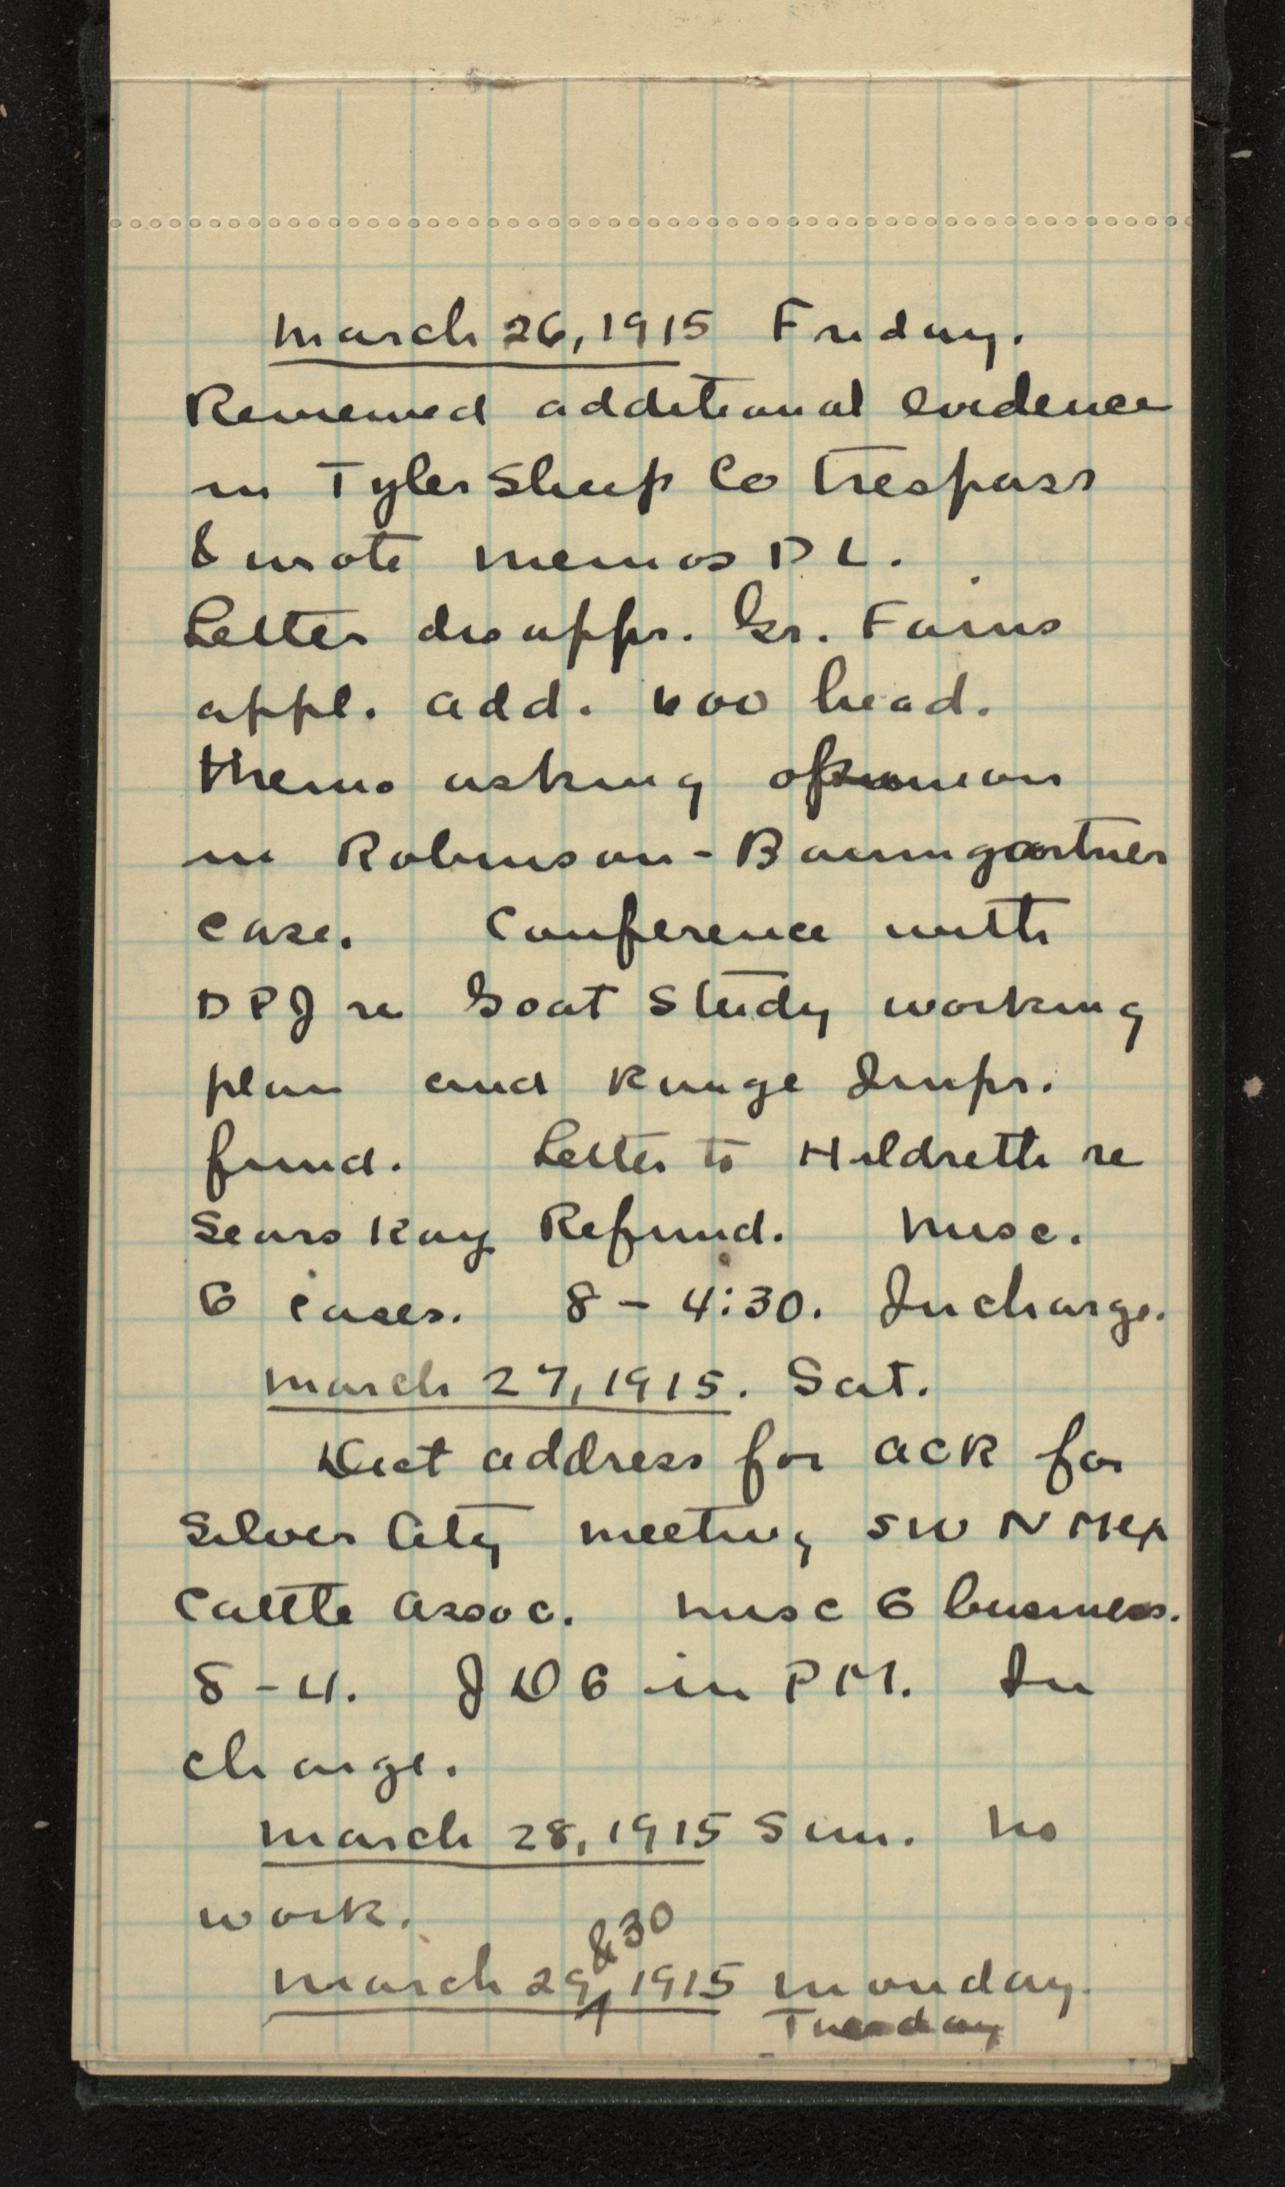 March 26, 1915 Friday.
Reviewed additional evidence
in Tyler Sheep Co trespass
& wrote memos D L.
Letter disappr. Gr. Fains
appl. add. 600 head.
Memo asking opinion
in Robinson - Baumgartner
case. Conference with
DPJ re Goat Study working
plan and Range Impr.
fund. Letter to Hildreth re
Sears Kay Refund. Misc.
G cases. 8 - 4:30. In charge.
March 27, 1915. Sat.
Dict address for ACR for
Silver City meeting SW N Mex
Cattle Assoc. Misc G business.
8 - 4. JDG in PM. In
charge.
March 28, 1915 Sun. No
work.
March 29 & 30, 1915 Monday.
Tuesday